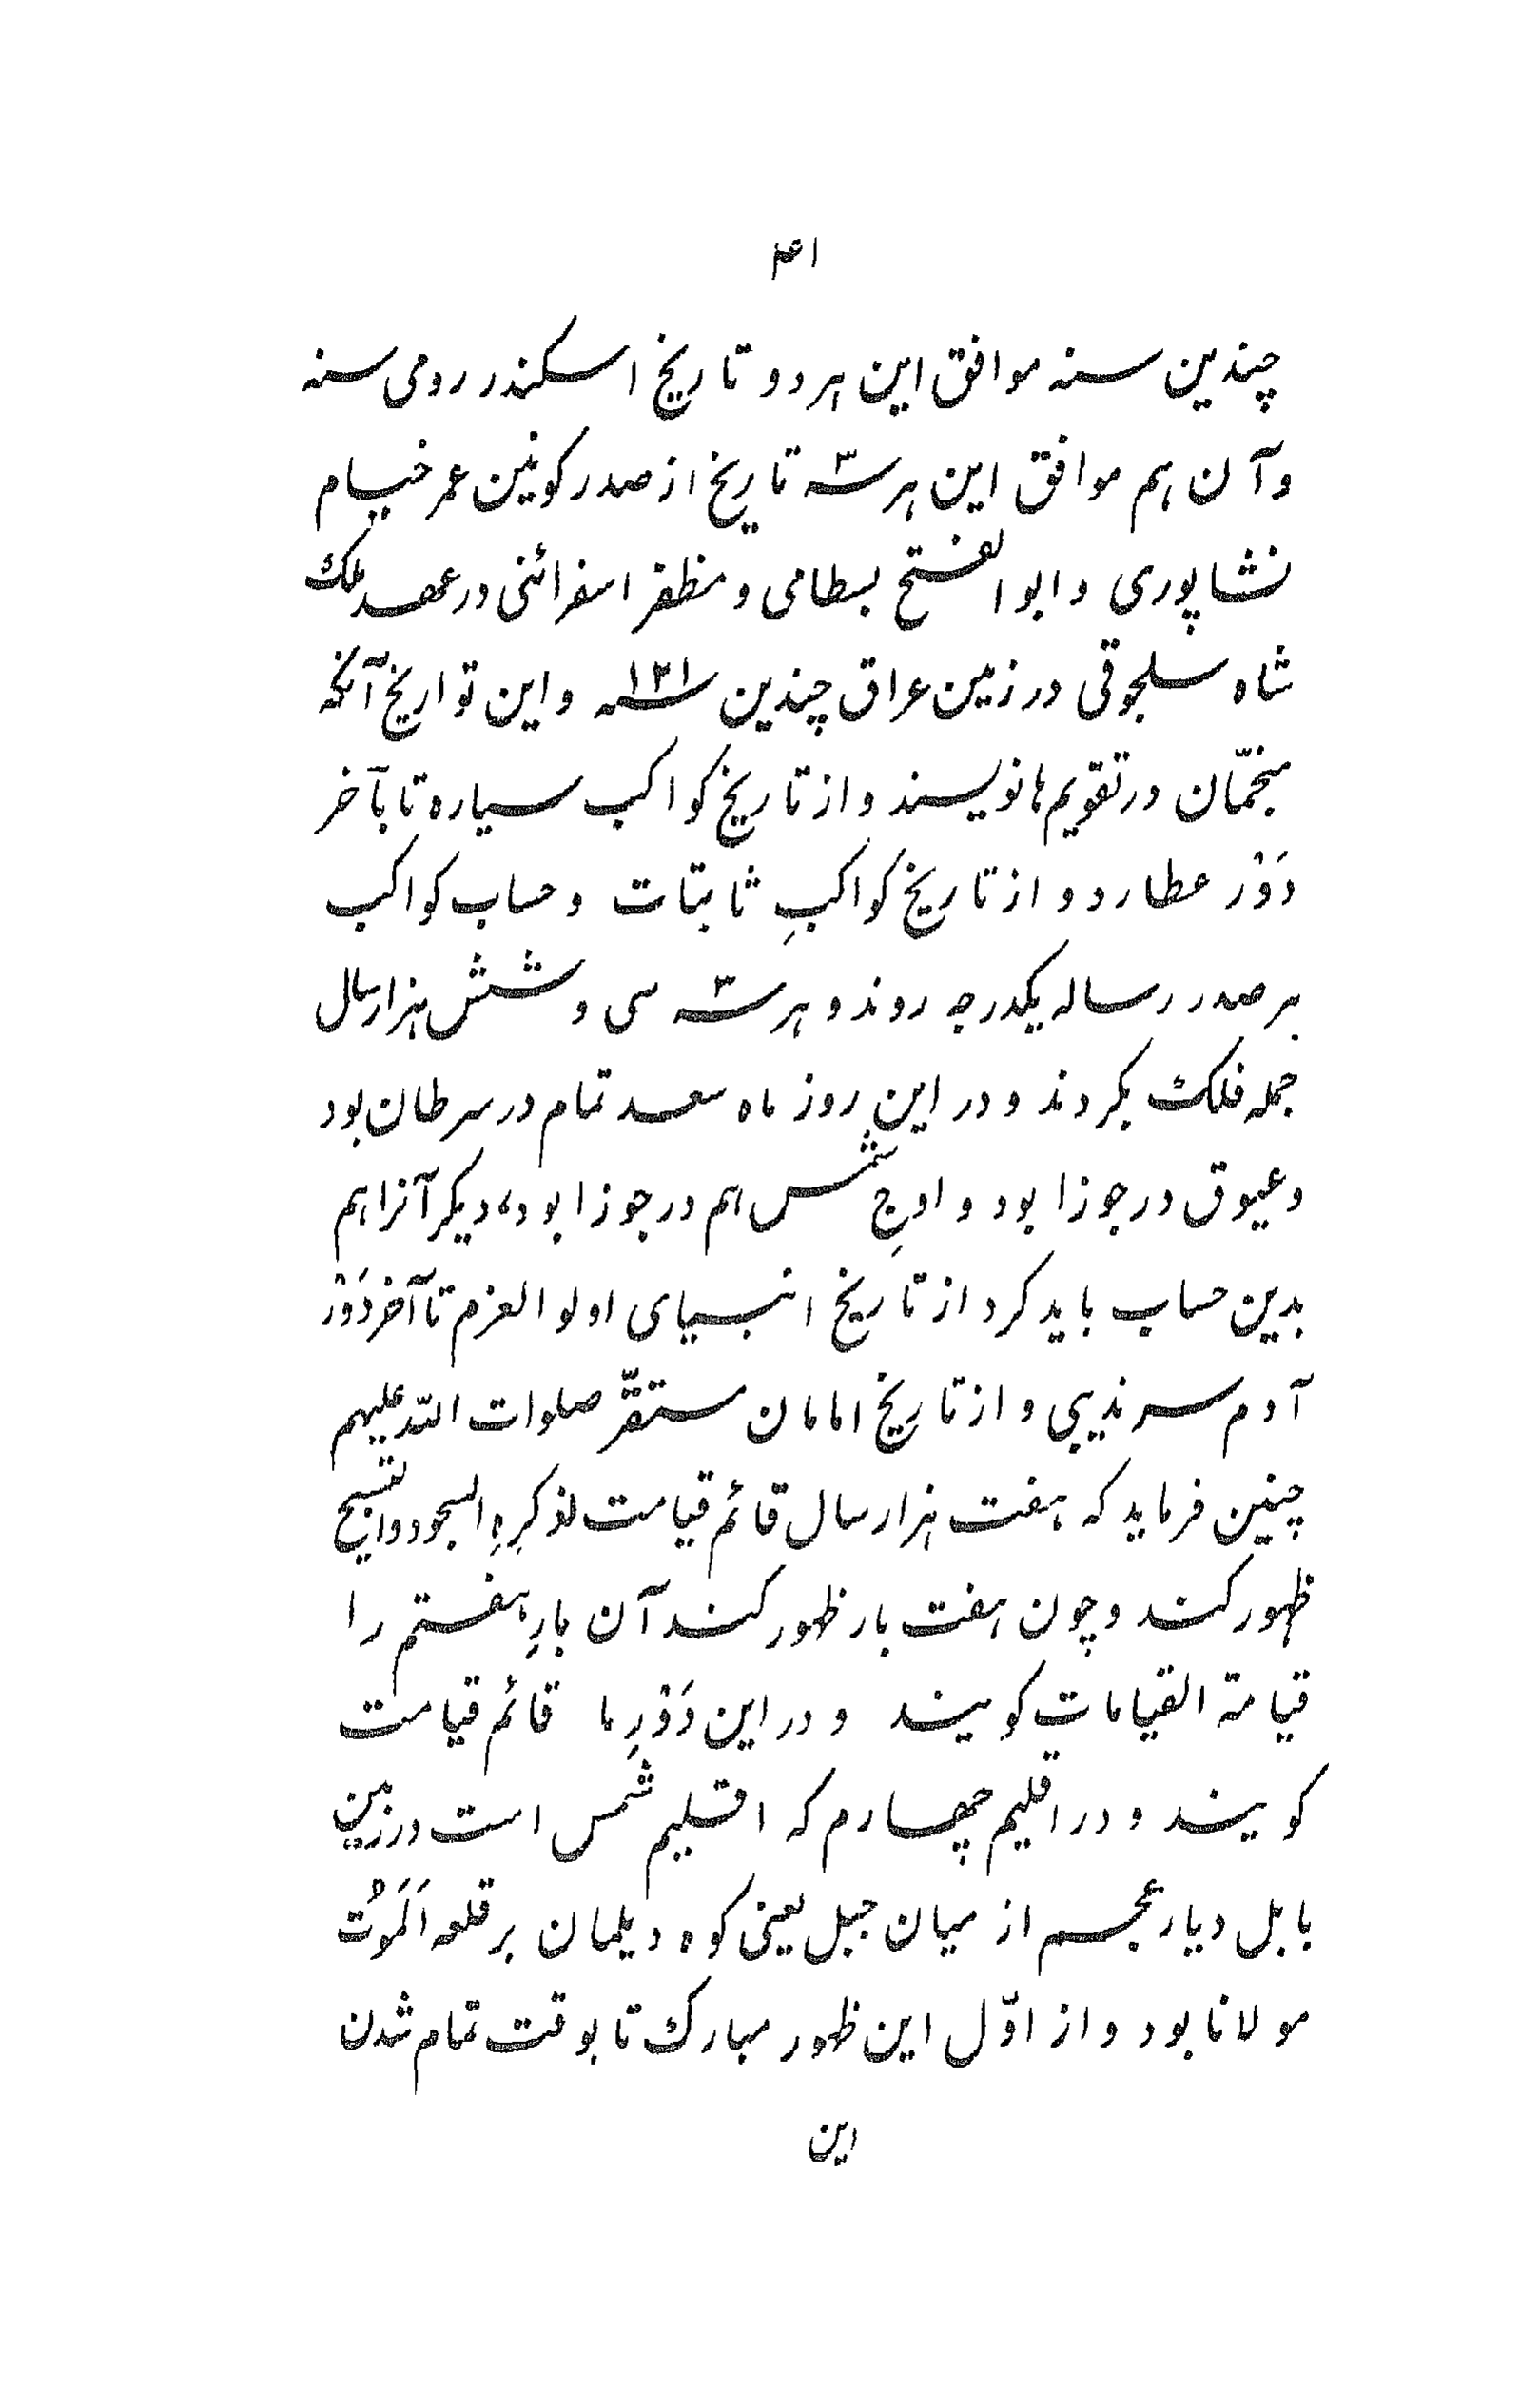 ۴۱
چندین سنه موافق این هر دو تاریخ اسکندر رومی سنه
و آن هم موافق این هر سه تاریخ از صدر کونین عمر خیام
نشاپوری و ابو الفتح بسطامی و مظفر اسفرائنی در عهد ملک
شاه سلجوقی در زمین عراق چندین سنه ۱۳۱ و این تواریخ آنکه
منجّمان در تقویم ها نویسند و از تاریخ کواکب سیاره تا بآخر
دَوْر عطارد و از تاریخ کواکبِ ثابتات و حساب کواکب
بر صدر رساله یکدرجه روند و هر سه سی و شش هزار سال
جمله فلک بکردند و در این روز ماه سعد تمام در سرطان بود
و عیوق در جوزا بود و اوجِ شمس هم در جوزا بود، دیکر آنرا هم
بدین حساب باید کرد از تاریخ انبیای اولو العزم تا آخر دَوْر
آدم سرندیپی و از تاریخ امامان مستقرّ صلوات الله علیهم
چنین فرماید که هفت هزار سال قائم قیامت لذکرِهِ السجود والتسبیح
ظهور کند و چون هفت بار ظهور کند آن بارِ هفتم را
قیامة القیامات کویند و در این دَوْرِ ما قائم قیامت
کویند و در اقلیم چهارم که اقلیم شمس است در زمین
بابل دیار عجم از میان جبل یعنی کوه دیلمان بر قلعه اَلَمَوْت
مولانا بود و از اوّل این ظهور مبارک تا بوقت تمام شدن
این